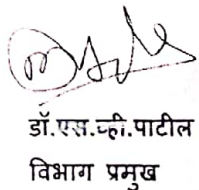 डॉ.एस.व्ही.पाटील
विभाग प्रमुख